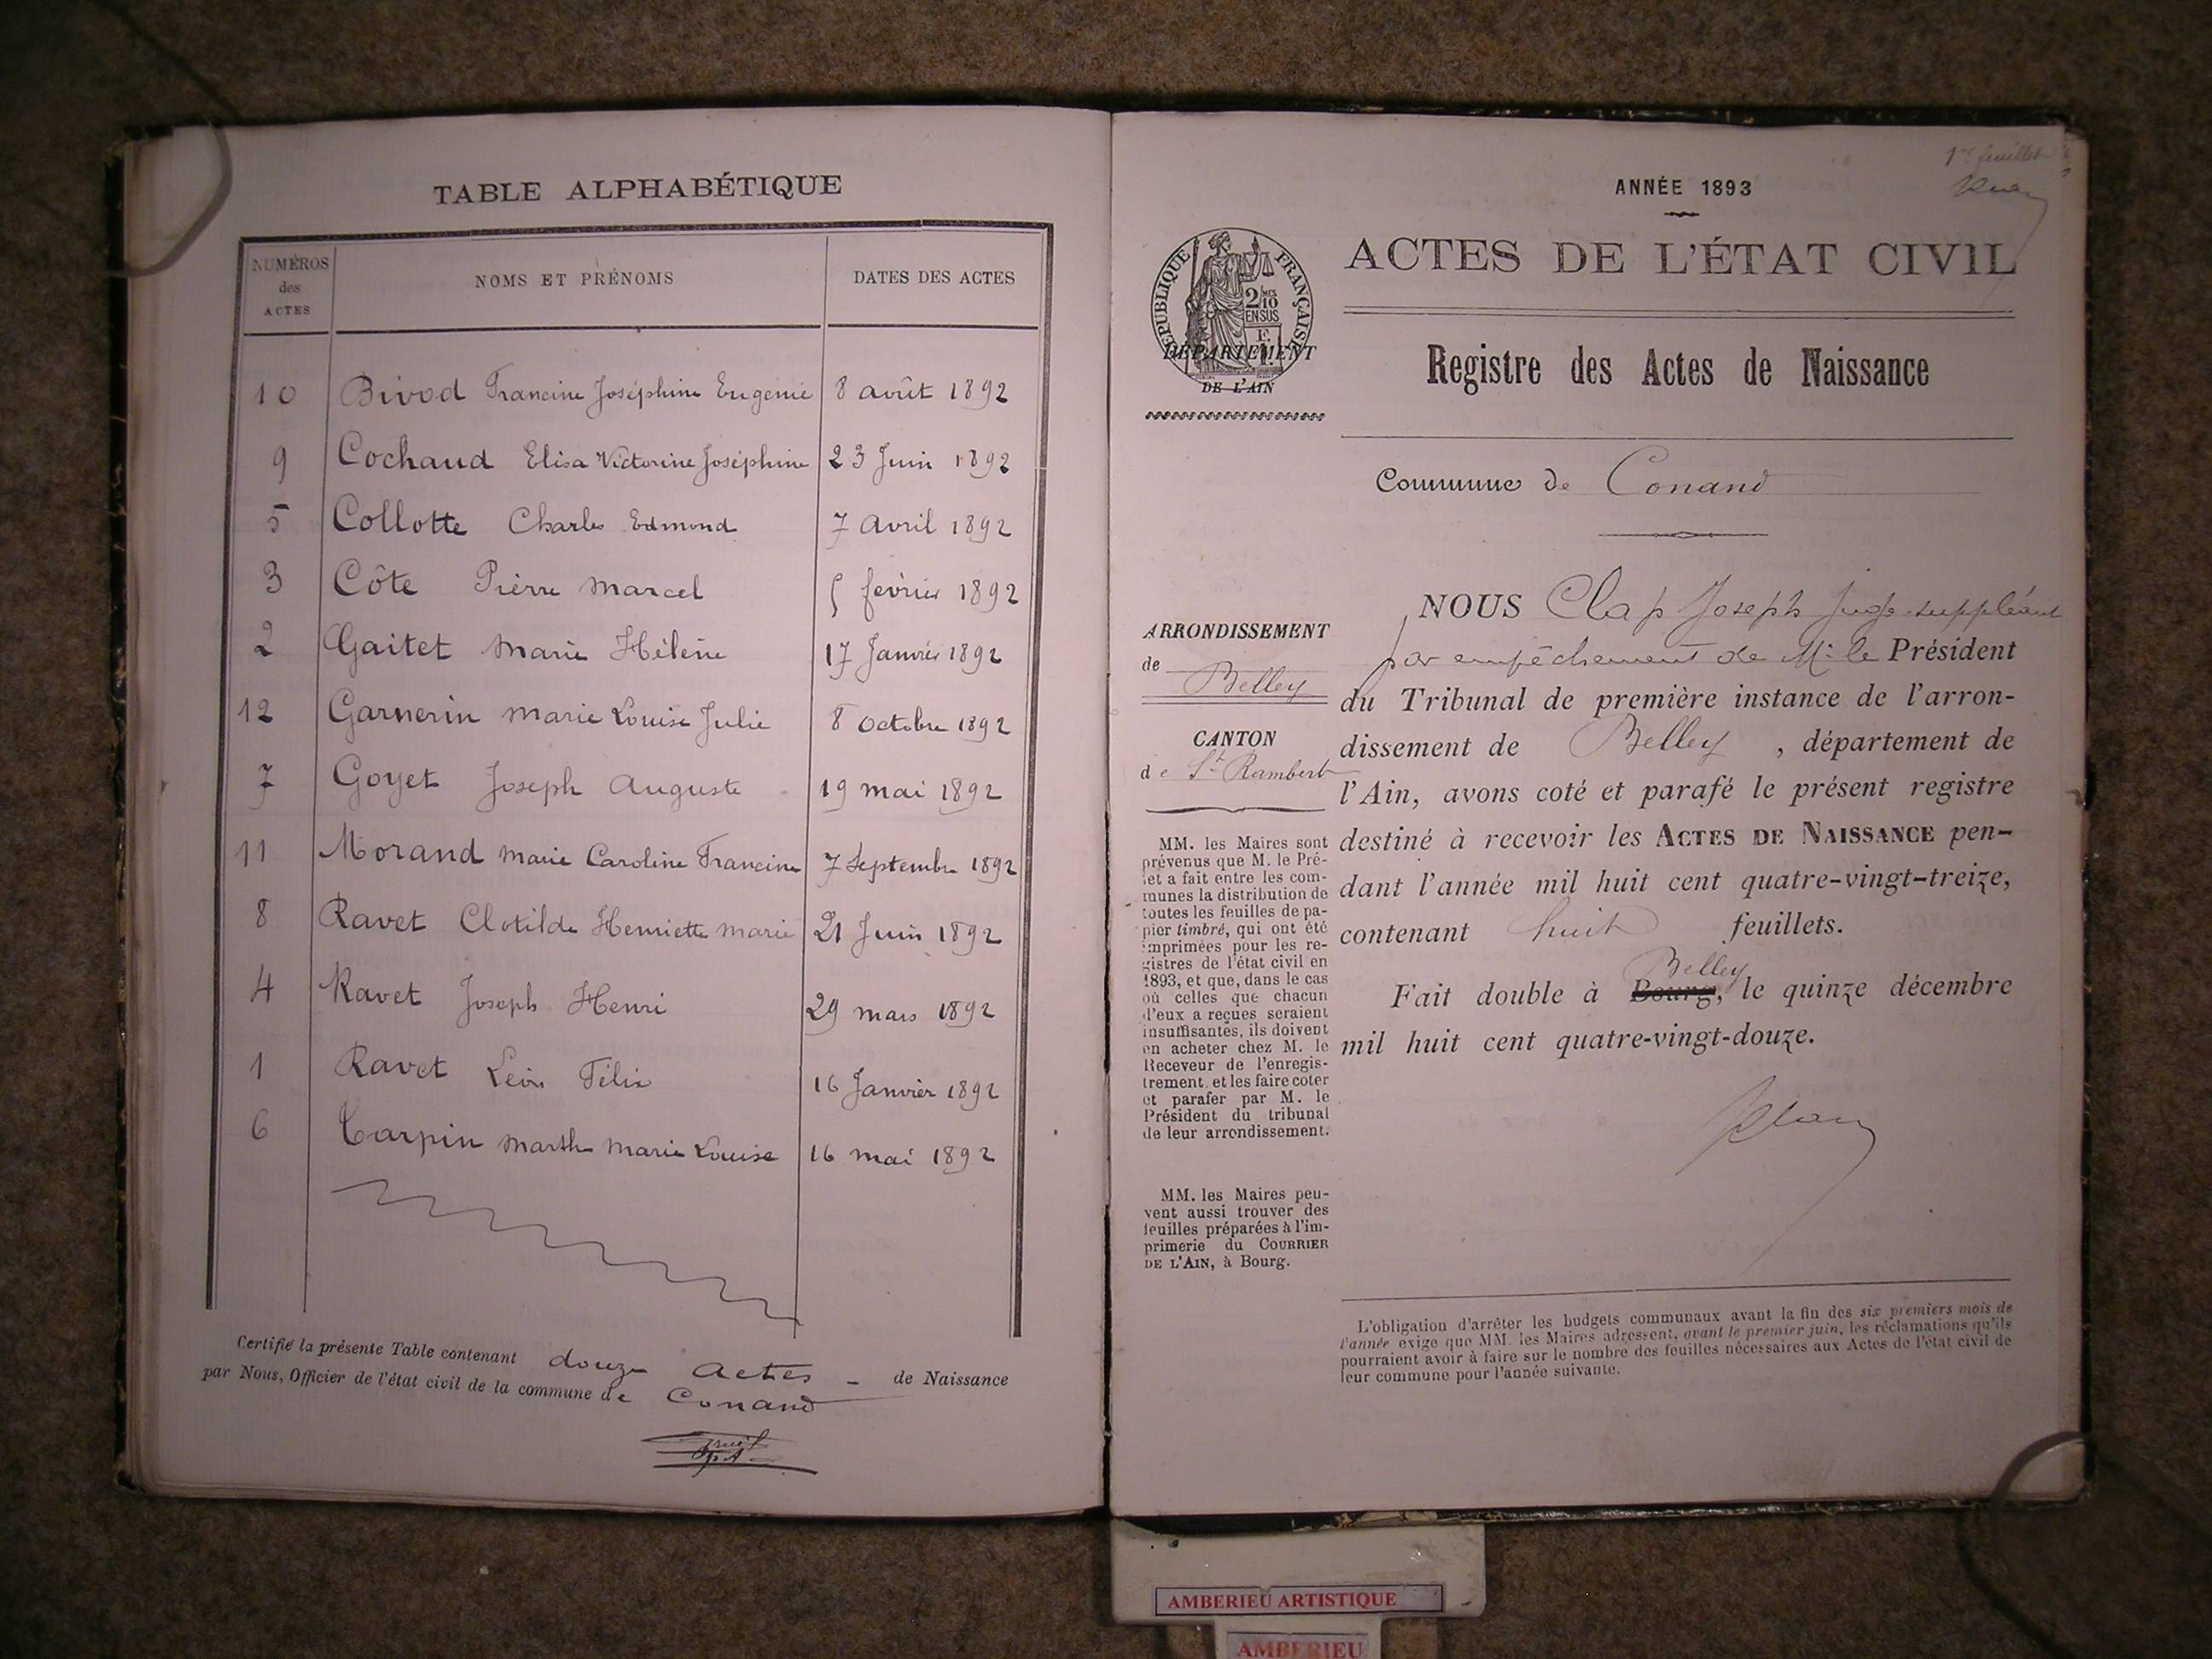 TABLE ALPHABÉTIQUE
NUMÉROS
des
ACTES
NOMS ET PRÉNOMS
DATES DES ACTES
10 Bivod Francine Joséphine Eugénie 8 août 1892
9 Cochaud Elisa Victorine Joséphine 23 Juin 1892
5 Collotte Charles Edmond 7 avril 1892
3 Côte Pierre Marcel 5 février 1892
2 Gaitet Marie Hélène 17 Janvier 1892
12 Garnerin Marie Louise Julie 8 Octobre 1892
7 Goyet Joseph Auguste 19 mai 1892
11 Morand Marie Caroline Francine 7 Septembre 1892
8 Ravet Clotilde Henriette Marie 21 Juin 1892
4 Ravet Joseph Henri 29 mars 1892
1 Ravet Léon Félix 16 Janvier 1892
6 Carpin Marthe Marie Louise 16 mai 1892
Certifié la présente Table contenant douze actes - de Naissance
par Nous, Officier de l'état civil de la commune de Conand
1er feuillet
ANNÉE 1893
RÉPUBLIQUE FRANÇAISE
2/10 MES
EN SUS
DÉPARTEMENT
DE L'AIN
ACTES DE L'ÉTAT CIVIL
Registre des Actes de Naissance
Commune de Conand
ARRONDISSEMENT
de Belley
CANTON
de St Rambert
MM. les Maires sont
prévenus que M. le Pré-
fet a fait entre les com-
munes la distribution de
toutes les feuilles de pa-
pier timbré, qui ont été
imprimées pour les re-
gistres de l'état civil en
1893, et que, dans le cas
où celles que chacun
d'eux a reçues seraient
insuffisantes, ils doivent
en acheter chez M. le
Receveur de l'enregis-
trement, et les faire coter
et parafer par M. le
Président du tribunal
de leur arrondissement.
MM. les Maires peu-
vent aussi trouver des
feuilles préparées à l'im-
primerie du COURRIER
DE L'AIN, à Bourg.
NOUS Clap Joseph Juge suppléant
par empêchement de M. le Président
du Tribunal de première instance de l'arron-
dissement de Belley , département de
l'Ain, avons coté et parafé le présent registre
destiné à recevoir les ACTES DE NAISSANCE pen-
dant l'année mil huit cent quatre-vingt-treize,
contenant huit feuillets.
Belley
Fait double à Bourg, le quinze décembre
mil huit cent quatre-vingt-douze.
L'obligation d'arrêter les budgets communaux avant la fin des six premiers mois de
l'année exige que MM. les Maires adressent, avant le premier juin, les réclamations qu'ils
pourraient avoir à faire sur le nombre des feuilles nécessaires aux Actes de l'état civil de
leur commune pour l'année suivante.
AMBERIEU ARTISTIQUE
AMBERIEU